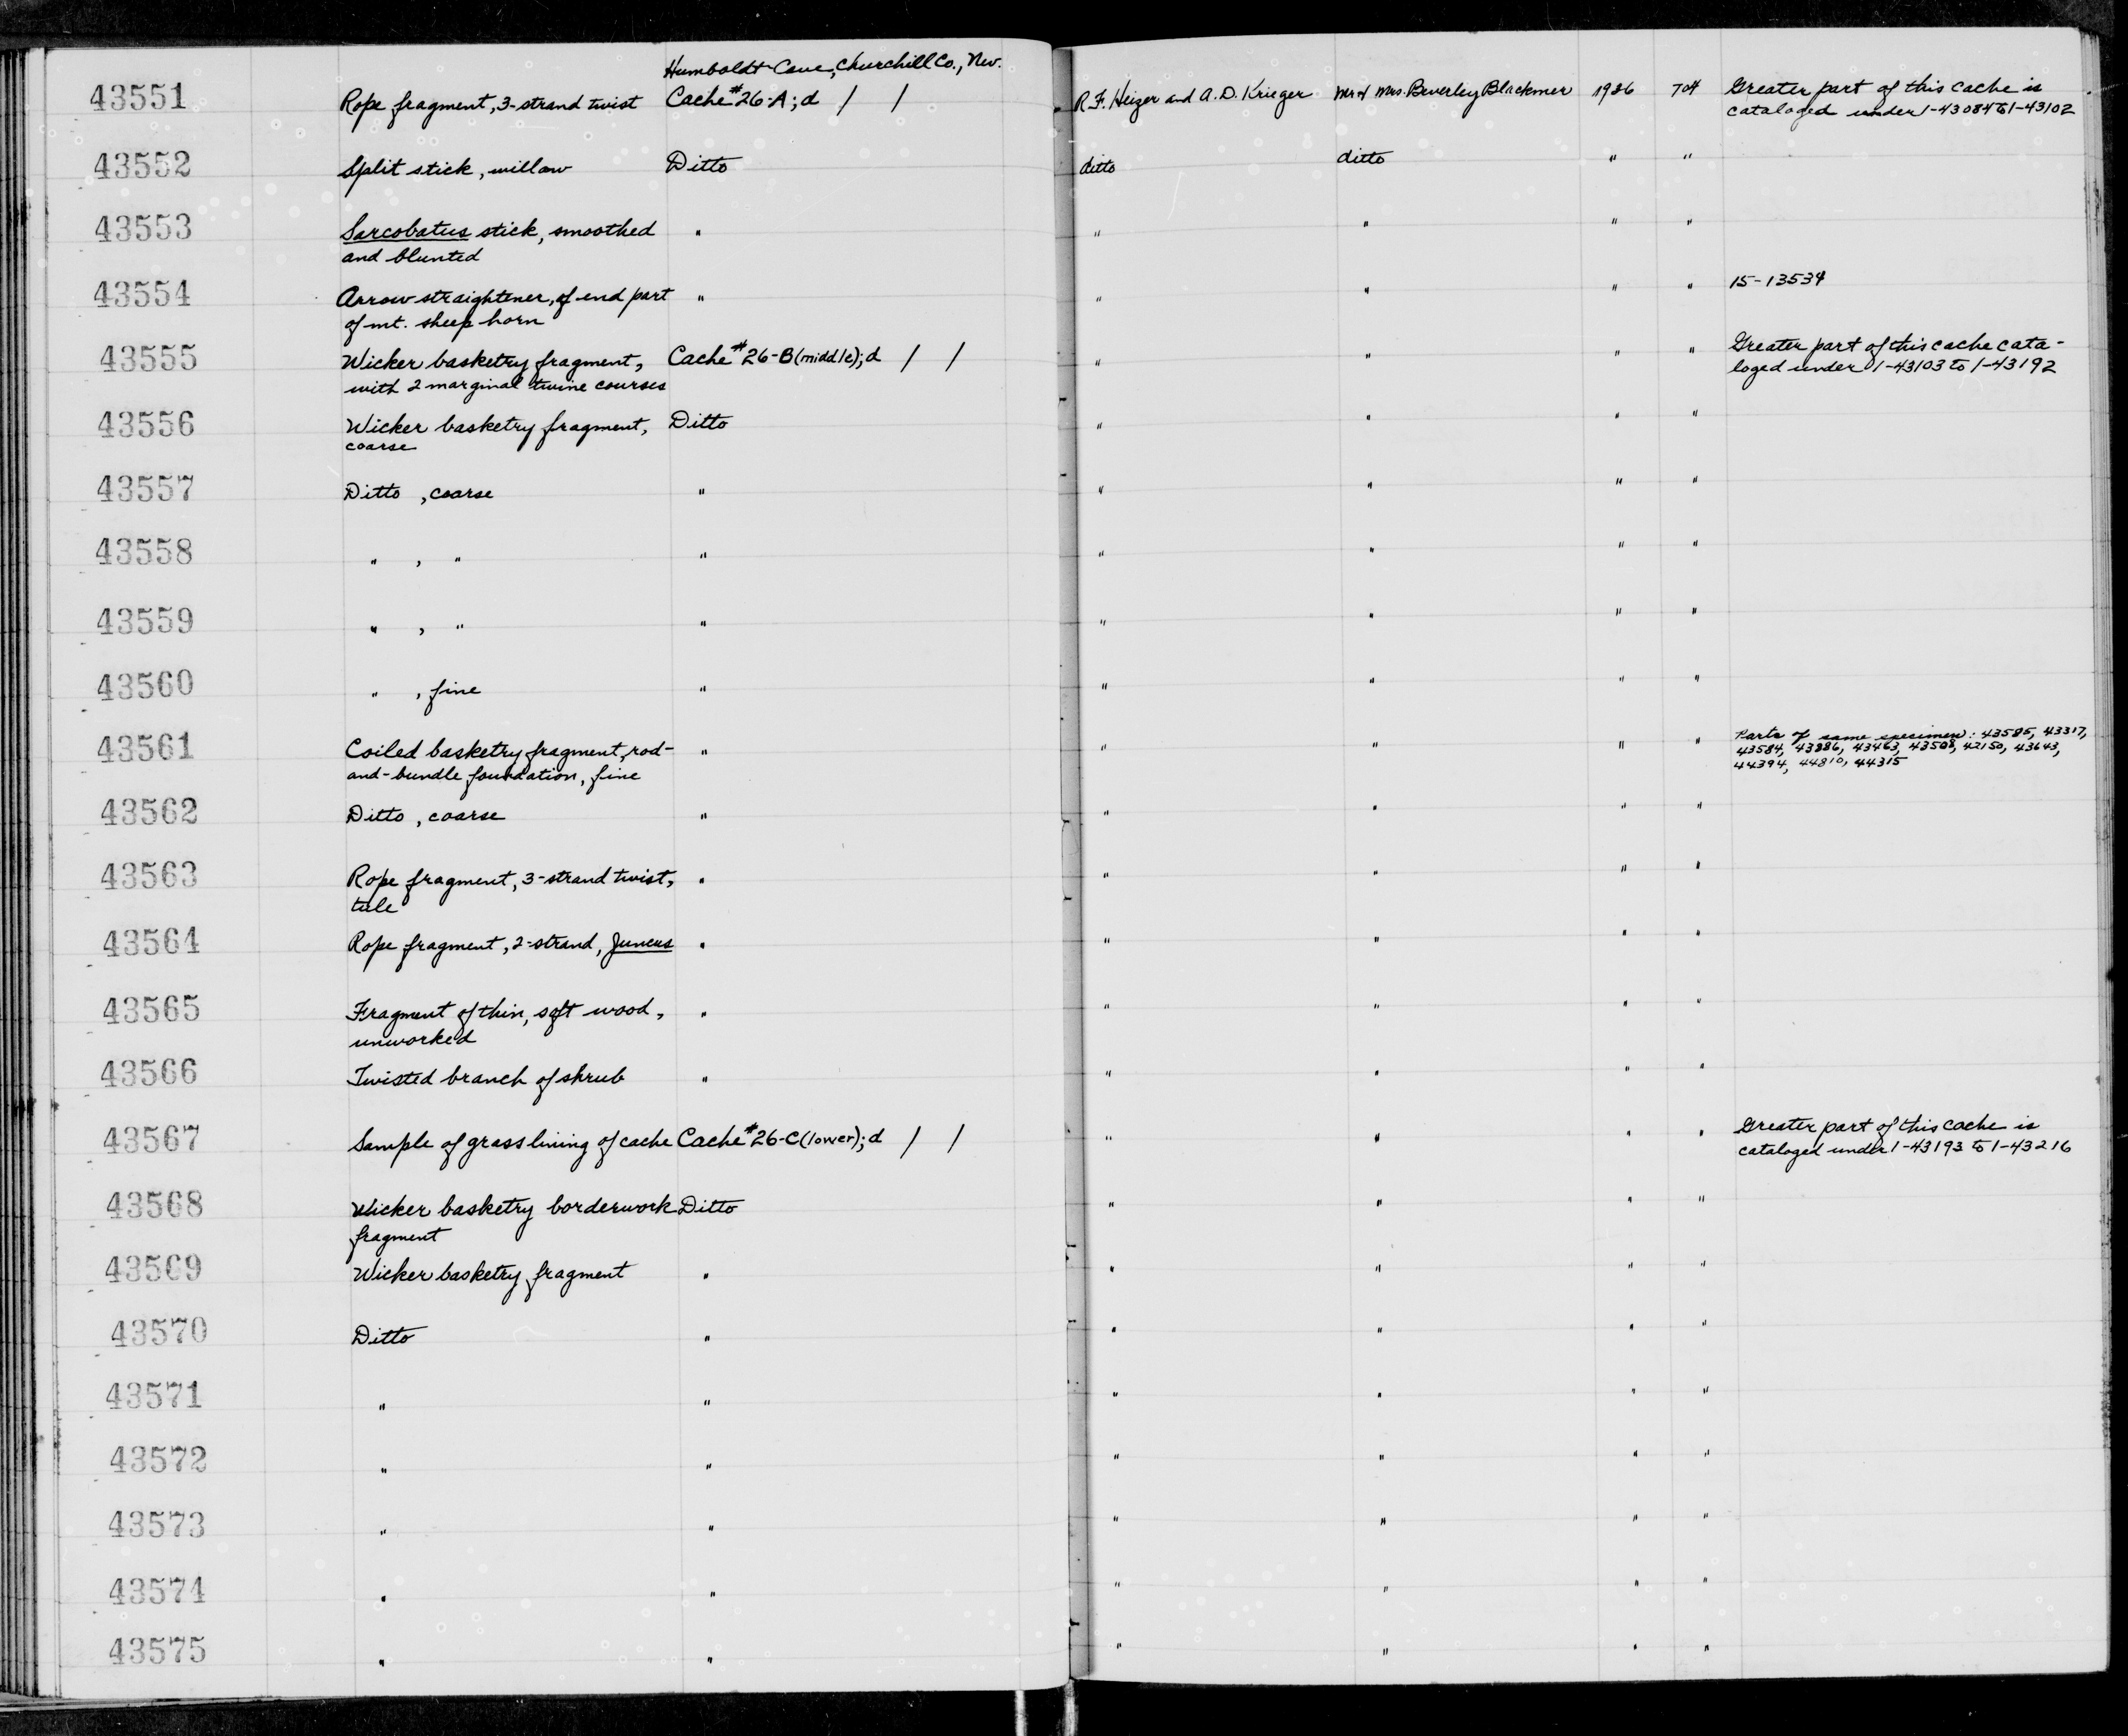 Humboldt Cave, Churchill Co., Nev.
43551 Rope fragment, 3-strand twist Cache #26-A; d / / R.F. Heizer and A.D. Krieger Mr & Mrs. Beverley Blackmer 1936 704 Greater part of this cache is
cataloged under 1-43084 to 1-43102
43552 Split stick, willow Ditto ditto ditto " "
43553 Sarcobatus stick, smoothed " " " " "
and blunted
43554 Arrow-straightener, of end part " " " " " 15-13534
of mt. sheep horn
43555 Wicker basketry fragment, Cache #26-B (middle); d / / " " " " Greater part of this cache cata-
with 2 marginal twine courses loged under 1-43103 to 1-43192
43556 Wicker basketry fragment, Ditto " " " "
coarse
43557 Ditto , coarse " " " " "
43558 " , " " " " " "
43559 " , " " " " " "
43560 " , fine " " " " "
43561 Coiled basketry fragment, rod- " " " " " Parts of same specimen: 43585, 43317,
and-bundle foundation, fine 43584, 43886, 43463, 43508, 42150, 43643,
44394, 44810, 44315
43562 Ditto , coarse " " " " "
43563 Rope fragment, 3-strand twist, " " " " "
tule
43564 Rope fragment, 2-strand, Juncus " " " " "
43565 Fragment of thin, soft wood, " " " " "
unworked
43566 Twisted branch of shrub " " " " "
43567 Sample of grass lining of cache Cache #26-C (lower); d / / " " " " Greater part of this cache is
cataloged under 1-43193 to 1-43216
43568 Wicker basketry borderwork Ditto " " " "
fragment
43569 Wicker basketry fragment " " " " "
43570 Ditto " " " " "
43571 " " " " " "
43572 " " " " " "
43573 " " " " " "
43574 " " " " " "
43575 " " " " " "